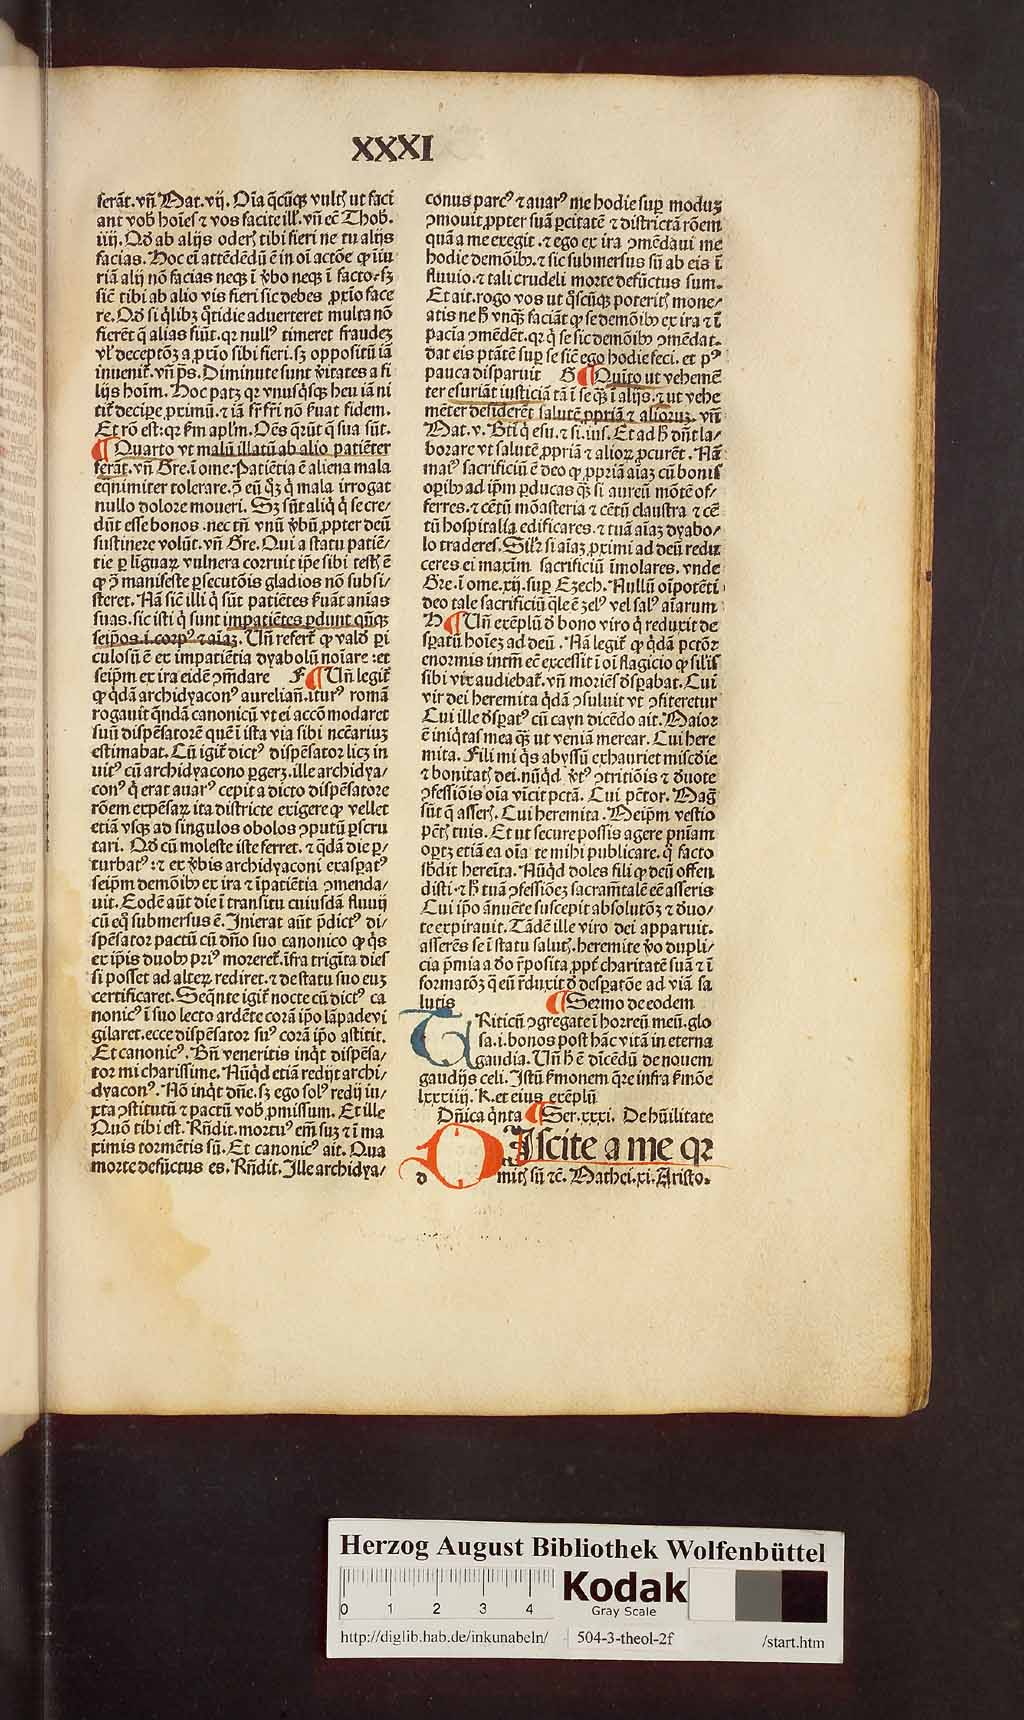 XXXI
ferāt. vñ Mat. vij. Oīa q̄cūq̧ vultꝭ ut faci
ant vob̄ hoīes ⁊ vos facite illꝭ. vñ ec̄ Thob.
iiij. Qd̄ ab alijs oderꝭ tibi fieri ne tu alijs
facias. Hoc ei attēdēdū ē in oī actōe ꝙ iiu
riā alij nō facias neq̧ ī v̄bo neq̧ ī facto. sꝫ
sic̄ tibi ab alio vis fieri sic debes ꝓxīo face
re. Qd̄ si q̄libꝫ q̄tidie aduerteret multa nō
fierēt q̄ alias fiūt. qꝛ nullꝰ timeret fraudeꝫ
vl̓ deceptōꝫ a ꝓxīo sibi fieri. sꝫ oppositū iā
inuenit᷑. vñ p̄s. Diminute sunt v̄itates a fi
lijs hoīm. Hoc patꝫ qꝛ vnusq̄sq̧ heu iā ni
tit᷑ decipe ꝓximū. ⁊ iā fr̄ fr̄i nō ẜuat fidem.
Et rō est: qꝛ ẜm apl̄m. Oēs q̄rūt q̄ sua sūt.
¶ Quarto vt malū illatū ab alio patiēter
ferāt. vñ Gre. ī ome. Patiētia ē aliena mala
eqnimiter tolerare. ꝯ̄ eū q̄ꝫ q̄ mala irrogat
nullo dolore moueri. Sꝫ sūt aliq̄ q̄ se cre/
dūt esse bonos. nec tn̄ vnū v̄bū ꝓpter deū
sustinere volūt. vñ Gre. Qui a statu patiē/
tie ꝑ līguaꝝ vulnera corruit ip̄e sibi testꝭ ē
ꝙ ꝯ̄ manifeste ꝑsecutōis gladios nō subsi/
steret. Nā sic̄ illi q̄ sūt patiētes ẜuāt anīas
suas. sic isti q̄ sunt impatiētes ꝑdunt qn̄q̧
seip̄os. i. corpꝰ ⁊ aīaꝫ. Un̄ refert᷑ ꝙ vald̄ ꝑi
culosū ē ex impatiētia dyabolū noīare: et
seipm̄ ex ira eidē ꝯm̄dare F ¶ Un̄ legit᷑
ꝙ q̄dā archidyaconꝰ aurelian̄. iturꝰ romā
rogauit q̄ndā canonicū vt ei accōmodaret
suū dispēsatorē quē ī ista via sibi nccāriuꝫ
estimabat. Cū igit᷑ dictꝰ dispēsator licꝫ in
uitꝰ cū archidyacono ꝑgerꝫ. ille archidya/
conꝰ q̄ erat auarꝰ cepit a dicto dispēsatore
rōem expēsaꝝ ita districte exigere ꝙ vellet
etiā vsq̧ ad singulos obolos ꝯputū ꝑscru
tari. Qd̄ cū moleste iste ferret. ⁊ q̄dā die ꝑ/
turbatꝰ: ⁊ ex v̄bis archidyaconi exasꝑatꝰ
seipm̄ demōibꝰ ex ira ⁊ īpatiētia ꝯmenda/
uit. Eodē aūt die ī transitu cuiusdā fluuij
cū eq̄ submersus ē. Inierat aūt p̄dictꝰ di/
spēsator pactū cū dn̄o suo canonico ꝙ q̄s
ex ip̄is duobꝰ priꝰ moreret᷑. īfra trigīta dies
si posset ad alteꝝ rediret. ⁊ de statu suo euꝫ
certificaret. Seq̄nte igit᷑ nocte cū dictꝰ ca
nonicꝰ ī suo lecto ardēte corā ip̄o lāpade vi
gilaret. ecce dispēsator suꝰ corā ip̄o astitit.
Et canonicꝰ. Bn̄ veneritis inq̄t dispēsa/
tor mi charissime. Nūq̄d etiā redijt archi/
dyaconꝰ. Nō inq̄t dn̄e. sꝫ ego solꝰ redij iu/
xta ꝯstitutū ⁊ pactū vob̄ ꝓmissum. Et ille
Quō tibi est. Rn̄dit. mortuꝰ em̄ suꝫ ⁊ ī ma
ximis tormētis sū. Et canonicꝰ ait. Qua
morte defūctus es. Rn̄dit. Ille archidya/
conus parcꝰ ⁊ auarꝰ me hodie suꝑ moduꝫ
ꝯmouit ꝓpter suā ꝑcitatē ⁊ districtā rōem
quā a me exegit. ⁊ ego ex ira ꝯmēdaui me
hodie demōibꝰ. ⁊ sic submersus sū ab eis ī
fluuio. ⁊ tali crudeli morte defūctus sum.
Et ait. rogo vos ut q̄scūq̧ poteritꝭ mone/
atis ne h̄ vnq̄ꝫ faciāt ꝙ se demōibꝰ ex ira ⁊ ī
pacīa ꝯmēdēt. qꝛ q̄ se sic demōibꝰ ꝯmēdat.
dat eis ptātē suꝑ se sic̄ ego hodie feci. et pꝰ
pauca disparuit G ¶ Quīto ut vehemē
ter esuriāt iusticiā tā ī se q̄ꝫ ī alijs. ⁊ ut vehe
mēter desiderēt salutē ꝓpriā ⁊ alioruꝫ. vñ
Mat. v. Bt̄i q̄ esu. ⁊ si. ius. Et ad h̄ dn̄t la/
borare vt salutē ꝓpriā ⁊ alioꝝ ꝓcurēt. Nā
maiꝰ sacrificiū ē deo ꝙ ꝓpriā aīaꝫ cū bonis
oꝑibꝰ ad ip̄m ꝑducas q̄ꝫ si aureū mōtē of/
ferres. ⁊ cētū mōasteria ⁊ cētū claustra ⁊ cē
tū hospitalia edificares. ⁊ tuā aīaꝫ dyabo/
lo traderes. Silr̄ si aīaꝫ ꝓximi ad deū redu
ceres ei maxim̄ sacrificiū īmolares. vnde
Gre. ī ome. xij. suꝑ Ezech. Nullū oīpotēti
deo tale sacrificiū q̄le ē zelꝰ vel salꝰ aīarum
H ¶ Un̄ exēplū d̄ bono viro q̄ reduxit de
sꝑatū hoīeꝫ ad deū. Nā legit᷑ ꝙ q̄dā pctōr
enormis intm̄ ec̄ excessit ī oī flagicio ꝙ sil̓is
sibi vix audiebat᷑. vñ moriēs d̄sꝑabat. Cui
vir dei heremita q̄dā ꝯsuluit vt ꝯfiteretur
Cui ille d̄sꝑatꝰ cū cayn dicēdo ait. Maior
ē iniq̄tas mea q̄ꝫ ut veniā merear. Cui here
mita. Fili mi q̄s abyssū exhauriet misc̄die
⁊ bonitatꝭ dei. nūq̄d v̄tꝰ ꝯtritiōis ⁊ d̄uote
ꝯfessiōis oīa vīcit pctā. Cui pctōr. Maḡ
sūt q̄ asserꝭ. Cui heremita. Meip̄m vestio
pctīs tuis. Et ut secure possis agere pn̄iam
oportꝫ etiā ea oīa te mihi publicare. q̄ facto
sb̄dit hereīta. Nūq̄d doles fili ꝙ deū offen
disti. ⁊ h̄ tuā ꝯfessiōeꝫ sacram̄talē eē asseris
Cui ip̄o ānuēte suscepit absolutōꝫ ⁊ d̄uo/
te expirauit. Tādē ille viro dei apparuit.
asserēs se ī statu salutꝭ. heremite v̄o dupli/
cia p̄mia a d̄o r̄posita ꝓpt̄ charitatē suā ⁊ ī
formatōꝫ q̄ eū r̄duxit d̄ desꝑatōe ad viā sa
lutis ¶ Sermo de eodem
TRiticū ꝯgregate ī horreū meū. glo
sa. i. bonos post hāc vitā in eterna
gaudia. Un̄ h̄ ē dicēdū de nouem
gaudijs celi. Istū ẜmonem q̄re infra ẜmōe
lxxxiiij. K. et eius exēplū
Dn̄ica q̄nta ¶ Ser. xxxi. De hūilitate
DIscite a me qꝛ
mitꝭ sū ⁊c. Mathei. xi. Aristo.
d
Herzog August Bibliothek Wolfenbüttel
0 1 2 3 4
Kodak
Gray Scale
http://diglib.hab.de/inkunabeln/ 504-3-theol-2f /start.htm